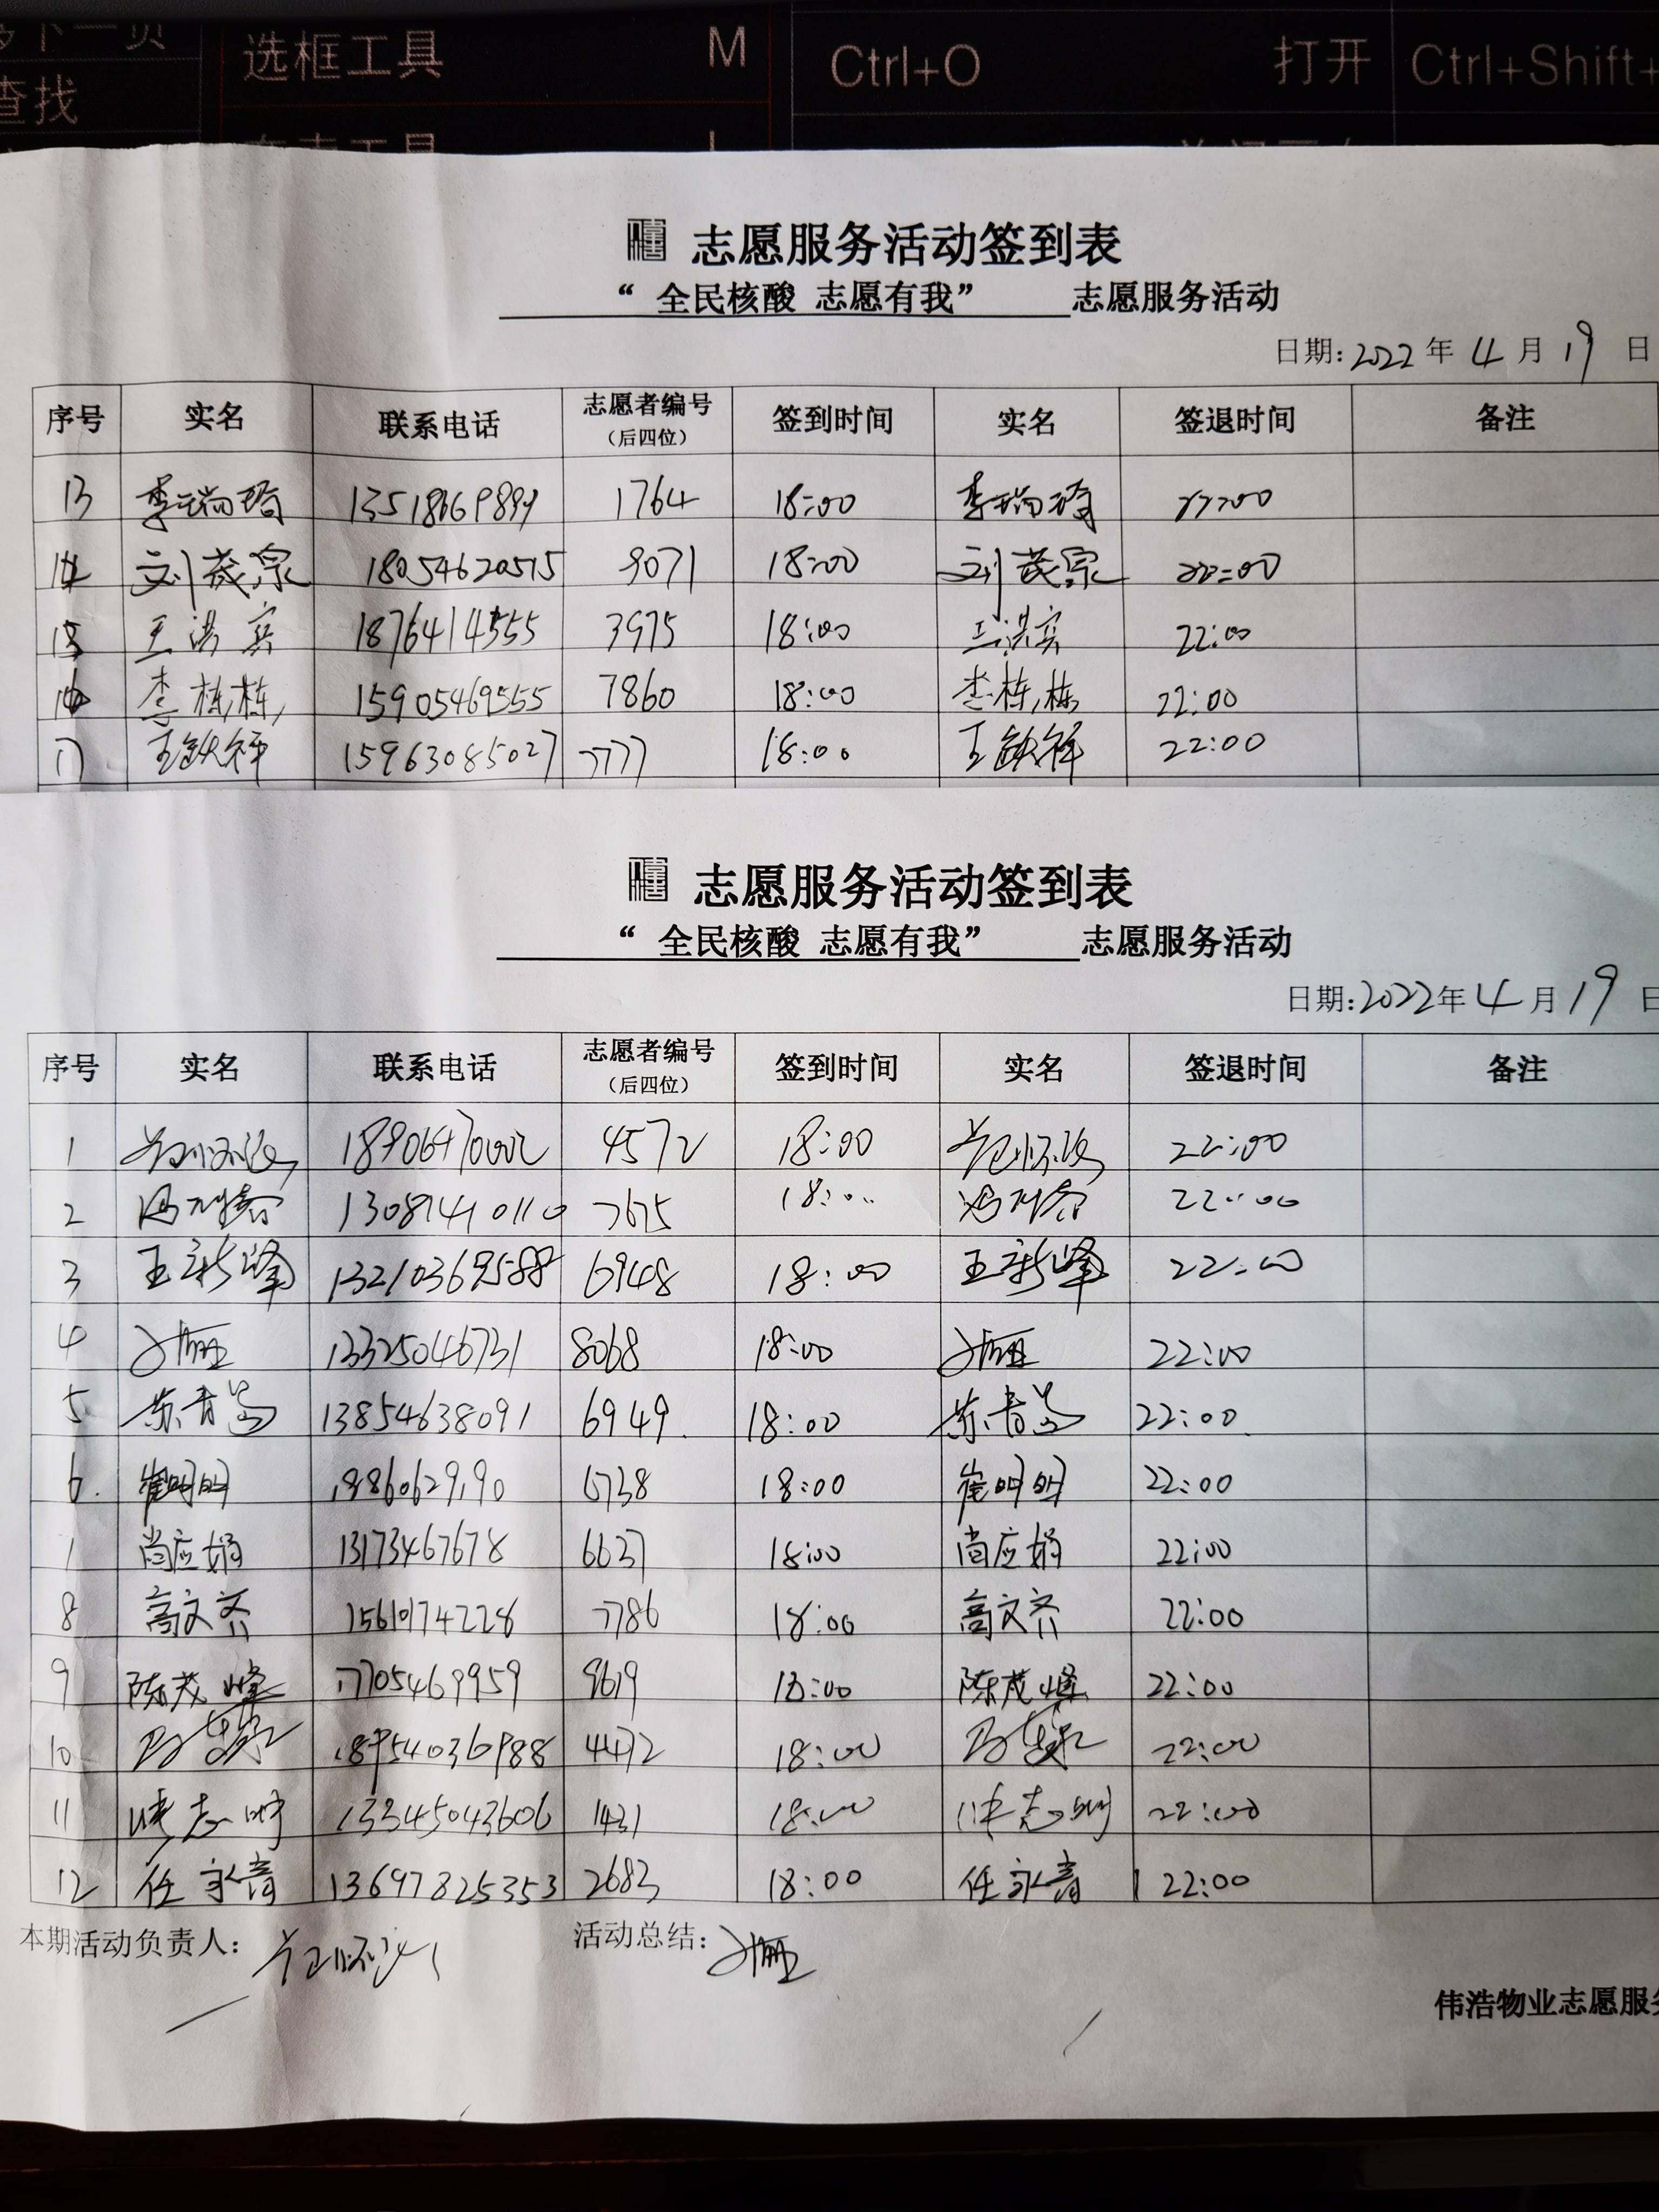 查找
选框工具 M
Ctrl+O 打开 Ctrl+Shift+
志愿服务活动签到表
“ 全民核酸 志愿有我” 志愿服务活动
日期:2022年 4 月 19 日
序号 实名 联系电话 志愿者编号 签到时间 实名 签退时间 备注
(后四位)
13 李瑞琦 1764 18:00 李瑞琦
14 刘茂宗 18054620515 9071 18:00 刘茂宗 22:00
15 18764714555 3975 18:00 22:00
16 李栋栋 15905469555 7860 18:00 李栋栋 22:00
17 王铁祥 15963085027 7777 18:00 王铁祥 22:00
志愿服务活动签到表
“ 全民核酸 志愿有我” 志愿服务活动
日期:2022年 4 月 19 日
序号 实名 联系电话 志愿者编号 签到时间 实名 签退时间 备注
(后四位)
1 4572 18:00 22:00
2 7675 18:00 22:00
3 王新峰 13210369588 6948 18:00 王新峰 22:00
4 13325046731 8068 18:00 22:00
5 13854638091 6949 18:00 22:00
6 崔明明 6738 18:00 崔明明 22:00
尚应娟 13173467678 6637 18:00 尚应娟 22:00
8 高文齐 15610174228 7786 18:00 高文齐 22:00
9 陈茂峰 17705469959 9619 18:00 陈茂峰 22:00
10 18954036988 4472 18:00 22:00
11 13345043606 1431 18:00 22:00
12 任永青 13697825353 2683 18:00 任永青 22:00
本期活动负责人: 活动总结:
伟浩物业志愿服务